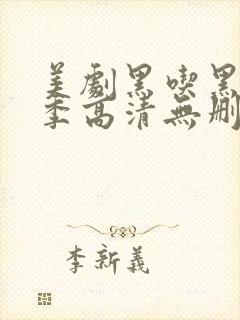 美劇黑喫黑
季高清無刪
李新義